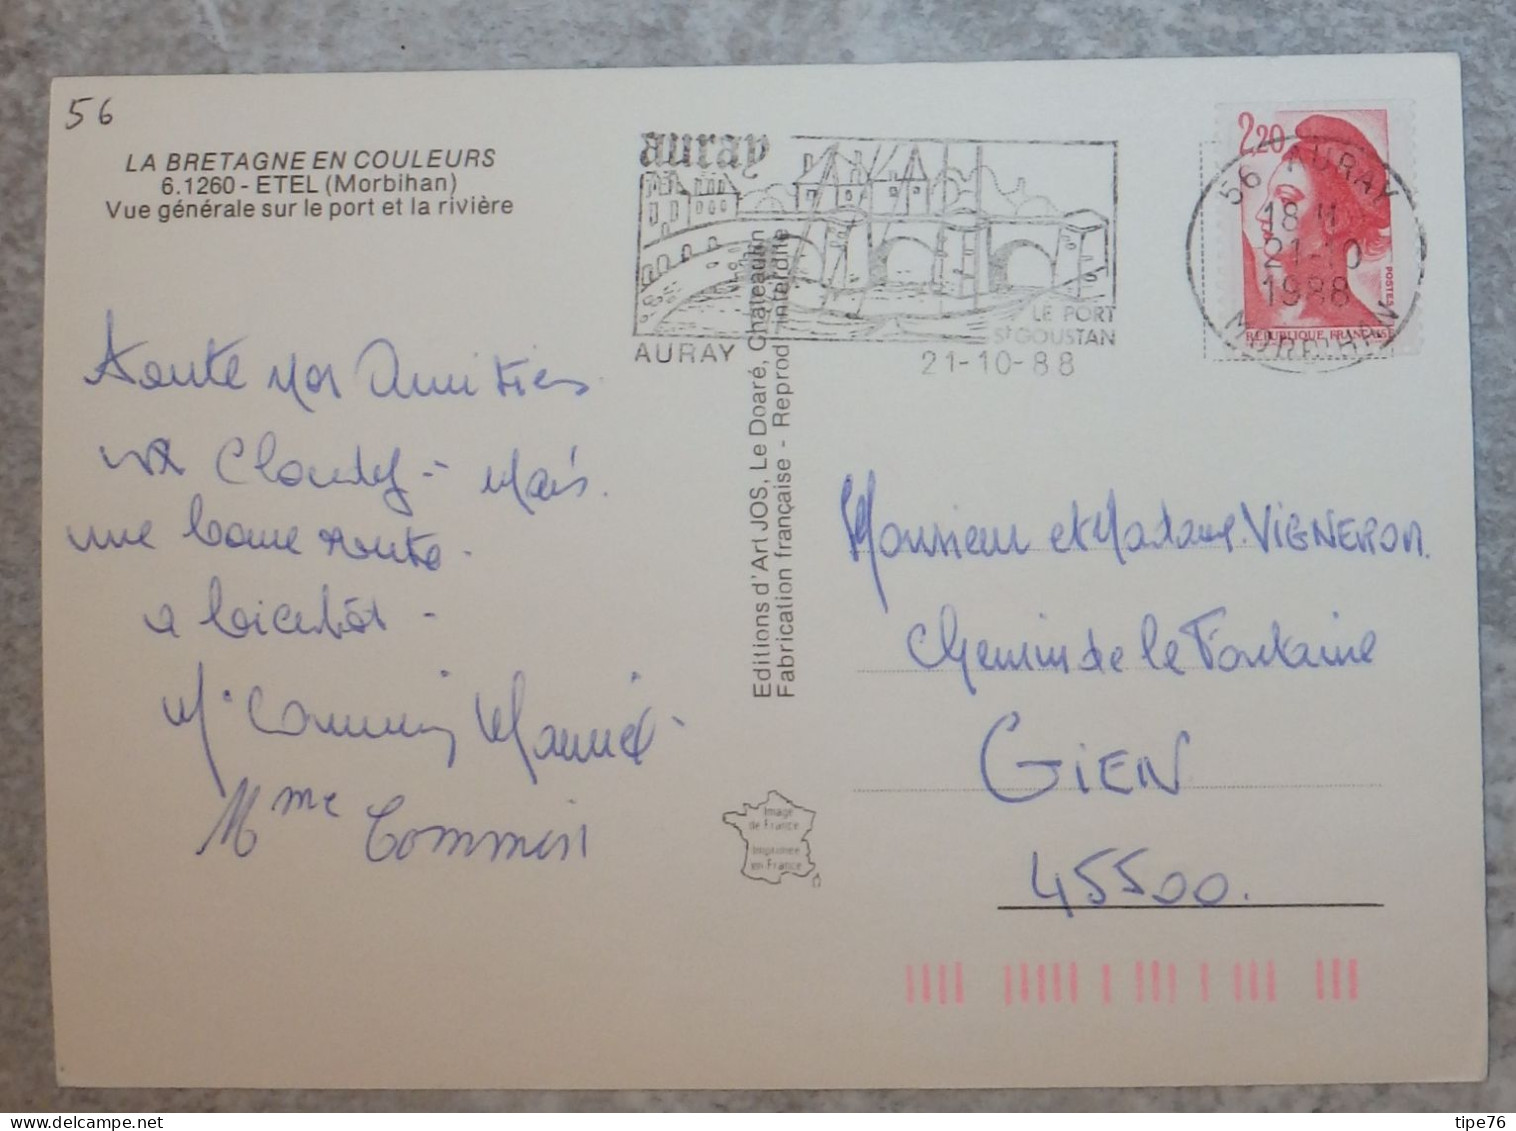 56
LA BRETAGNE EN COULEURS
6.1260 - ETEL (Morbihan)
Vue générale sur le port et la rivière
auray
LE PORT
St GOUSTAN
AURAY
21-10-88
2,20
POSTES
REPUBLIQUE FRANÇAISE
56 AURAY
18 H
21-10
1988
MORBIHAN
toute nos Amitiés
une bonne route.
a bientôt -
Mme Commin
Editions d'Art JOS, Le Doaré, Chateaulin
Fabrication française - Reprod. interdite
Image
de France
Imprimée
en France
Monsieur et Madame VIGNERON.
Chemin de le Fontaine
GIEN
45500.
tipe76